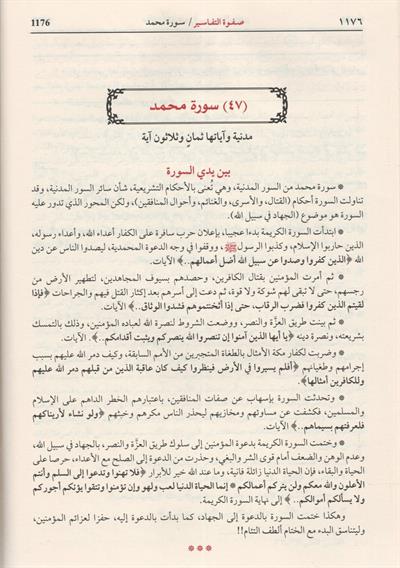 ١١٧٦
صفوة التفاسير / سورة محمد
1176
(٤٧) سورة محمد
مدنية وآياتها ثمانٍ وثلاثون آية
بين يدي السورة
* سورة محمد من السور المدنية، وهي تُعنى بالأحكام التشريعية، شأن سائر السور المدنية، وقد
تناولت السورة أحكام (القتال، والأسرى، والغنائم، وأحوال المنافقين)، ولكن المحور الذي تدور عليه
السورة هو موضوع (الجهاد في سبيل الله).
* ابتدأت السورة الكريمة بدءا عجيبا، بإعلان حرب سافرة على الكفار أعداء الله، وأعداء رسوله،
الذين حاربوا الإسلام، وكذبوا الرسول ﷺ، ووقفوا في وجه الدعوة المحمدية، ليصدوا الناس عن دين
الله ﴿الذين كفروا وصدوا عن سبيل الله أضل أعمالهم..﴾ الآيات.
* ثم أمرت المؤمنين بقتال الكافرين، وحصدهم بسيوف المجاهدين، لتطهير الأرض من
رجسهم، حتى لا تبقى لهم شوكة ولا قوة، ثم دعت إلى أسرهم بعد إكثار القتل فيهم والجراحات ﴿فإذا
لقيتم الذين كفروا فضرب الرقاب، حتى إذا أثخنتموهم فشدوا الوثاق..﴾ الآيات.
* ثم بينت طريق العزَّة والنصر، ووضعت الشروط لنصرة الله لعباده المؤمنين، وذلك بالتمسك
بشريعته، ونصرة دينه ﴿يا أيها الذين آمنوا إن تنصروا الله ينصركم ويثبت أقدامكم..﴾. الآيات.
* وضربت لكفار مكة الأمثال بالطغاة المتجبرين من الأمم السابقة، وكيف دمر الله عليهم بسبب
إجرامهم وطغيانهم ﴿أفلم يسيروا في الأرض فينظروا كيف كان عاقبة الذين من قبلهم دمر الله عليهم
وللكافرين أمثالها﴾.
* وتحدثت السورة بإسهاب عن صفات المنافقين، باعتبارهم الخطر الداهم على الإسلام
والمسلمين، فكشفت عن مساوئهم ومخازيهم ليحذر الناس مكرهم وخبثهم ﴿ولو نشاء لأريناكهم
فلعرفتهم بسيماهم..﴾ الآيات.
* وختمت السورة الكريمة بدعوة المؤمنين إلى سلوك طريق العزَّة والنصر، بالجهاد في سبيل الله،
وعدم الوهن والضعف أمام قوى الشر والبغي، وحذرت من الدعوة إلى الصلح مع الأعداء، حرصا على
الحياة والبقاء، فإن الحياة الدنيا زائلة فانية، وما عند الله خير للأبرار ﴿فلا تهنوا وتدعوا إلى السلم وأنتم
الأعلون والله معكم ولن يتركم أعمالكم * إنما الحياة الدنيا لعب ولهو وإن تؤمنوا وتتقوا يؤتكم أجوركم
ولا يسألكم أموالكم..﴾ إلى نهاية السورة الكريمة.
وهكذا ختمت السورة بالدعوة إلى الجهاد، كما بدأت بالدعوة إليه، حفزا لعزائم المؤمنين،
وليتناسق البدء مع الختام ألطف التئام!!
* * *